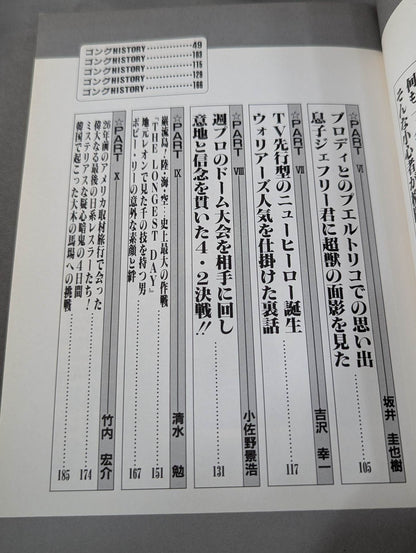 何を
そんな小心者
☆PART Ⅵ
ブロディとのプエルトリコでの思い出
息子ジェフリー君に超獣の面影を見た
坂井 圭也樹
105
☆PART Ⅶ
TV先行型のニューヒーロー誕生
ウォリアーズ人気を仕掛けた裏話
吉沢 幸一
117
☆PART Ⅷ
週プロのドーム大会を相手に回し
意地と信念を貫いた4・2決戦!!
小佐野景浩
131
☆PART Ⅸ
巌流島・陸・海・空…史上最大の作戦
『THE LONGEST DAY』
151
地元レオンで見た千の技を持つ男
ボビー・リーの意外な素顔と絆
167
清水 勉
☆PART Ⅹ
26年前のアメリカ取材旅行で会った
偉大なる最後の日系レスラーたち!
174
ミステリアスな疑心暗鬼の4日間
韓国で起こった大木の馬場への挑戦
185
竹内 宏介
ゴングHISTORY 49
ゴングHISTORY 103
ゴングHISTORY 115
ゴングHISTORY 129
ゴングHISTORY 166